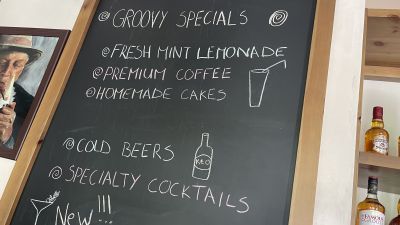 GROOVY SPECIALS
@FRESH MINT LEMONADE
@PREMIUM COFFEE
@HOMEMADE CAKES
@COLD BEERS
KEO
@SPECIALTY COCKTAILS
New!!!